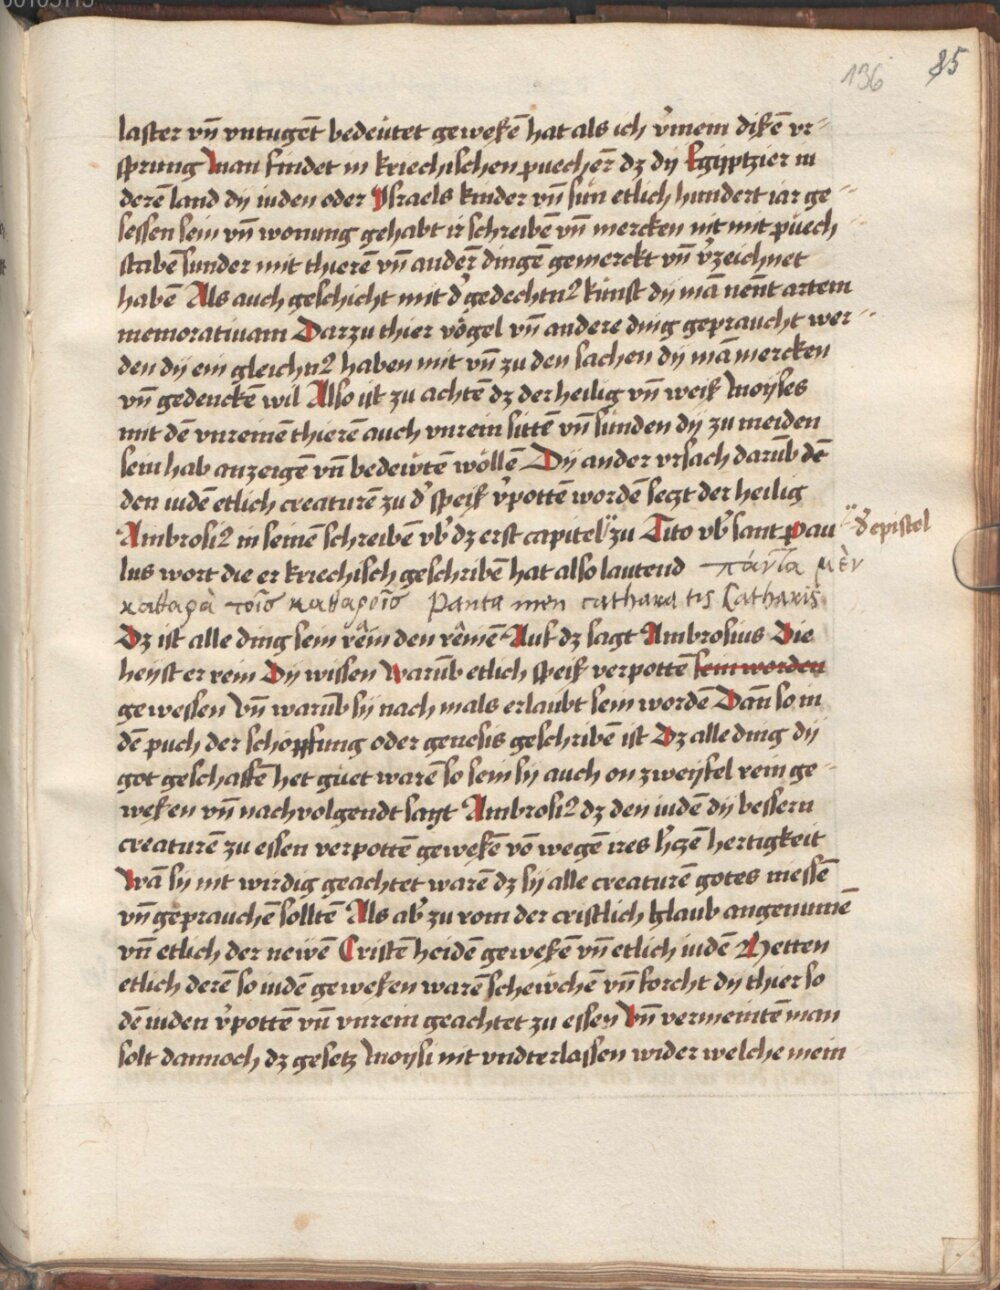 136 85
laster vn̄ vntugēt bedeütet geweßē hat als ich v̓mein dißē vr-
sprung Man findet in kriechischen puecher̄ dz dij Egijptzier in
derē land dij iuden oder Ysraels kinder vn̄ sün etlich hundert iar ge-
sessen sein vn̄ wonung gehabt ir schreibē vn̄ mercken nit mit püech-
stabē sunder mit thierē vn̄ ander̄ dingē gemerckt vn̄ v̓zeichnet
habē Als auch geschicht mit d̓ gedechtnꝰ kunst dij mā nēnt artem
memorativam Darzu thier vögel vn̄ andere ding gepraucht wer-
den dij ein gleichnꝰ haben mit vn̄ zu den sachen dij mā mercken
vn̄ gedenckē wil Also ist zu achtē dz der heilig vn̄ weiß Moijses
mit dē vnreinē thierē auch vnrein sittē vn̄ sünden dij zu meiden
sein hab anzeigē vn̄ bedeẅtē wöllē Dij ander vrsach darūb dē
den iudē etlich creaturē zu d̓ speiß v̓pottē worden setzt der heilig
Ambrosiꝰ in seinē schreibē vb̓ dz erst capitel " zu Tito vb̓ sant Pau " d̓ epistel
lus wort die er kriechisch geschribē hat also lautend πάντα μὲν
καθαρὰ τοῖς καθαροῖς Panta men cathara tis Catharis
Dz ist alle ding sein rein den reinē Auf dz sagt Ambrosius Die
heijst er rein Dij wissen Warūb etlich speiß verpottē sein worden
gewessen Vn̄ warūb sij nach mals erlaubt sein wordē Dan̄ so in
dē puch der schopffung oder genesis geschribē ist Dz alle ding dij
got geschaffē het güet warē so sein sij auch on zweijfel rein ge-
weßen vn̄ nachvolgendt sagt Ambrosiꝰ dz den iudē dij bessern
creaturē zu essen verpottē geweßē vō wegē ires h̓tzē hertigkeit
Wā sij nit wirdig geachtet warē dz sij alle creaturē gotes niessē
vn̄ geprauchē solltē Als ab̓ zu rom der cristlich glaub angenumē
vn̄ etlich der neẅē Cristē heidē geweßē vn̄ etlich iudē Hetten
etlich derē so iudē geweßen warē scheẅchē vn̄ forcht dij thier so
dē iuden v̓pottē vn̄ vnrein geachtet zu essen Vn̄ vermeintē man
solt dannoch dz gesetz Moijsi nit vndterlassen wider welche mein